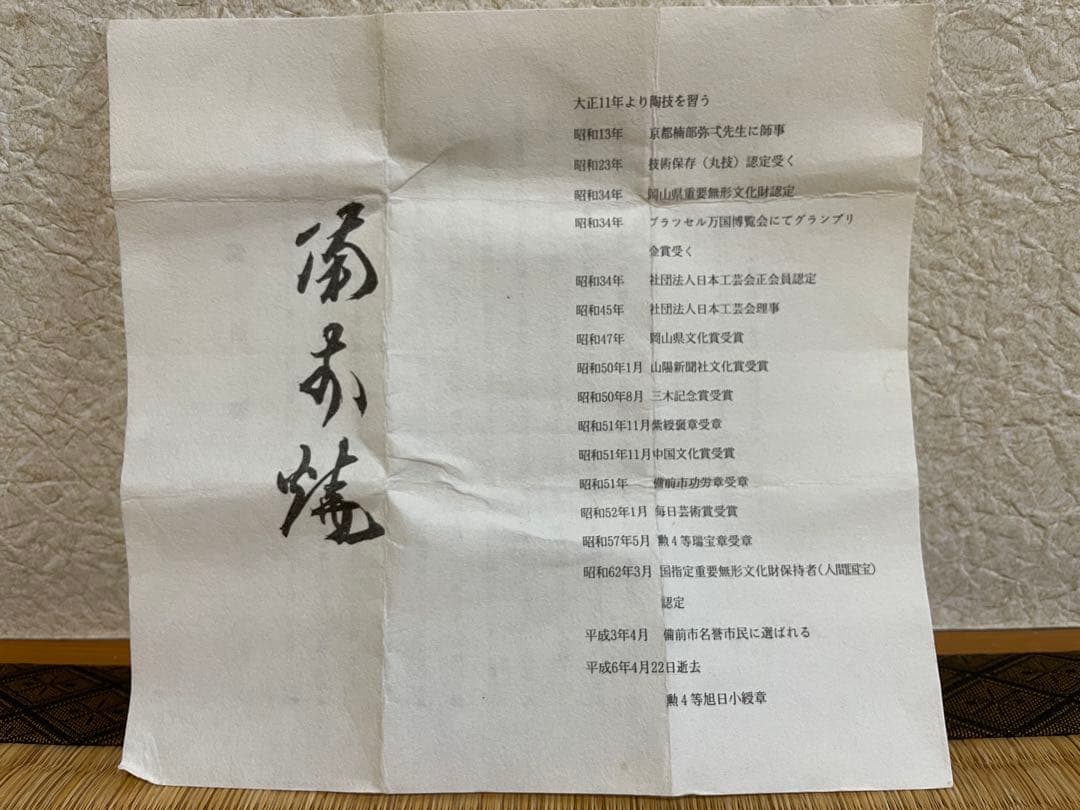 大正11年より陶技を習う
昭和13年 京都楠部弥弌先生に師事
昭和23年 技術保存(丸技)認定受く
昭和34年 岡山県重要無形文化財認定
昭和34年 ブラッセル万国博覧会にてグランプリ
金賞受く
昭和34年 社団法人日本工芸会正会員認定
昭和45年 社団法人日本工芸会理事
昭和47年 岡山県文化賞受賞
昭和50年1月 山陽新聞社文化賞受賞
昭和50年8月 三木記念賞受賞
昭和51年11月紫綬褒章受章
昭和51年11月中国文化賞受賞
昭和51年 備前市功労章受章
昭和52年1月 毎日芸術賞受賞
昭和57年5月 勲4等瑞宝章受章
昭和62年3月 国指定重要無形文化財保持者(人間国宝)
認定
平成3年4月 備前市名誉市民に選ばれる
平成6年4月22日逝去
勲4等旭日小綬章
備前焼